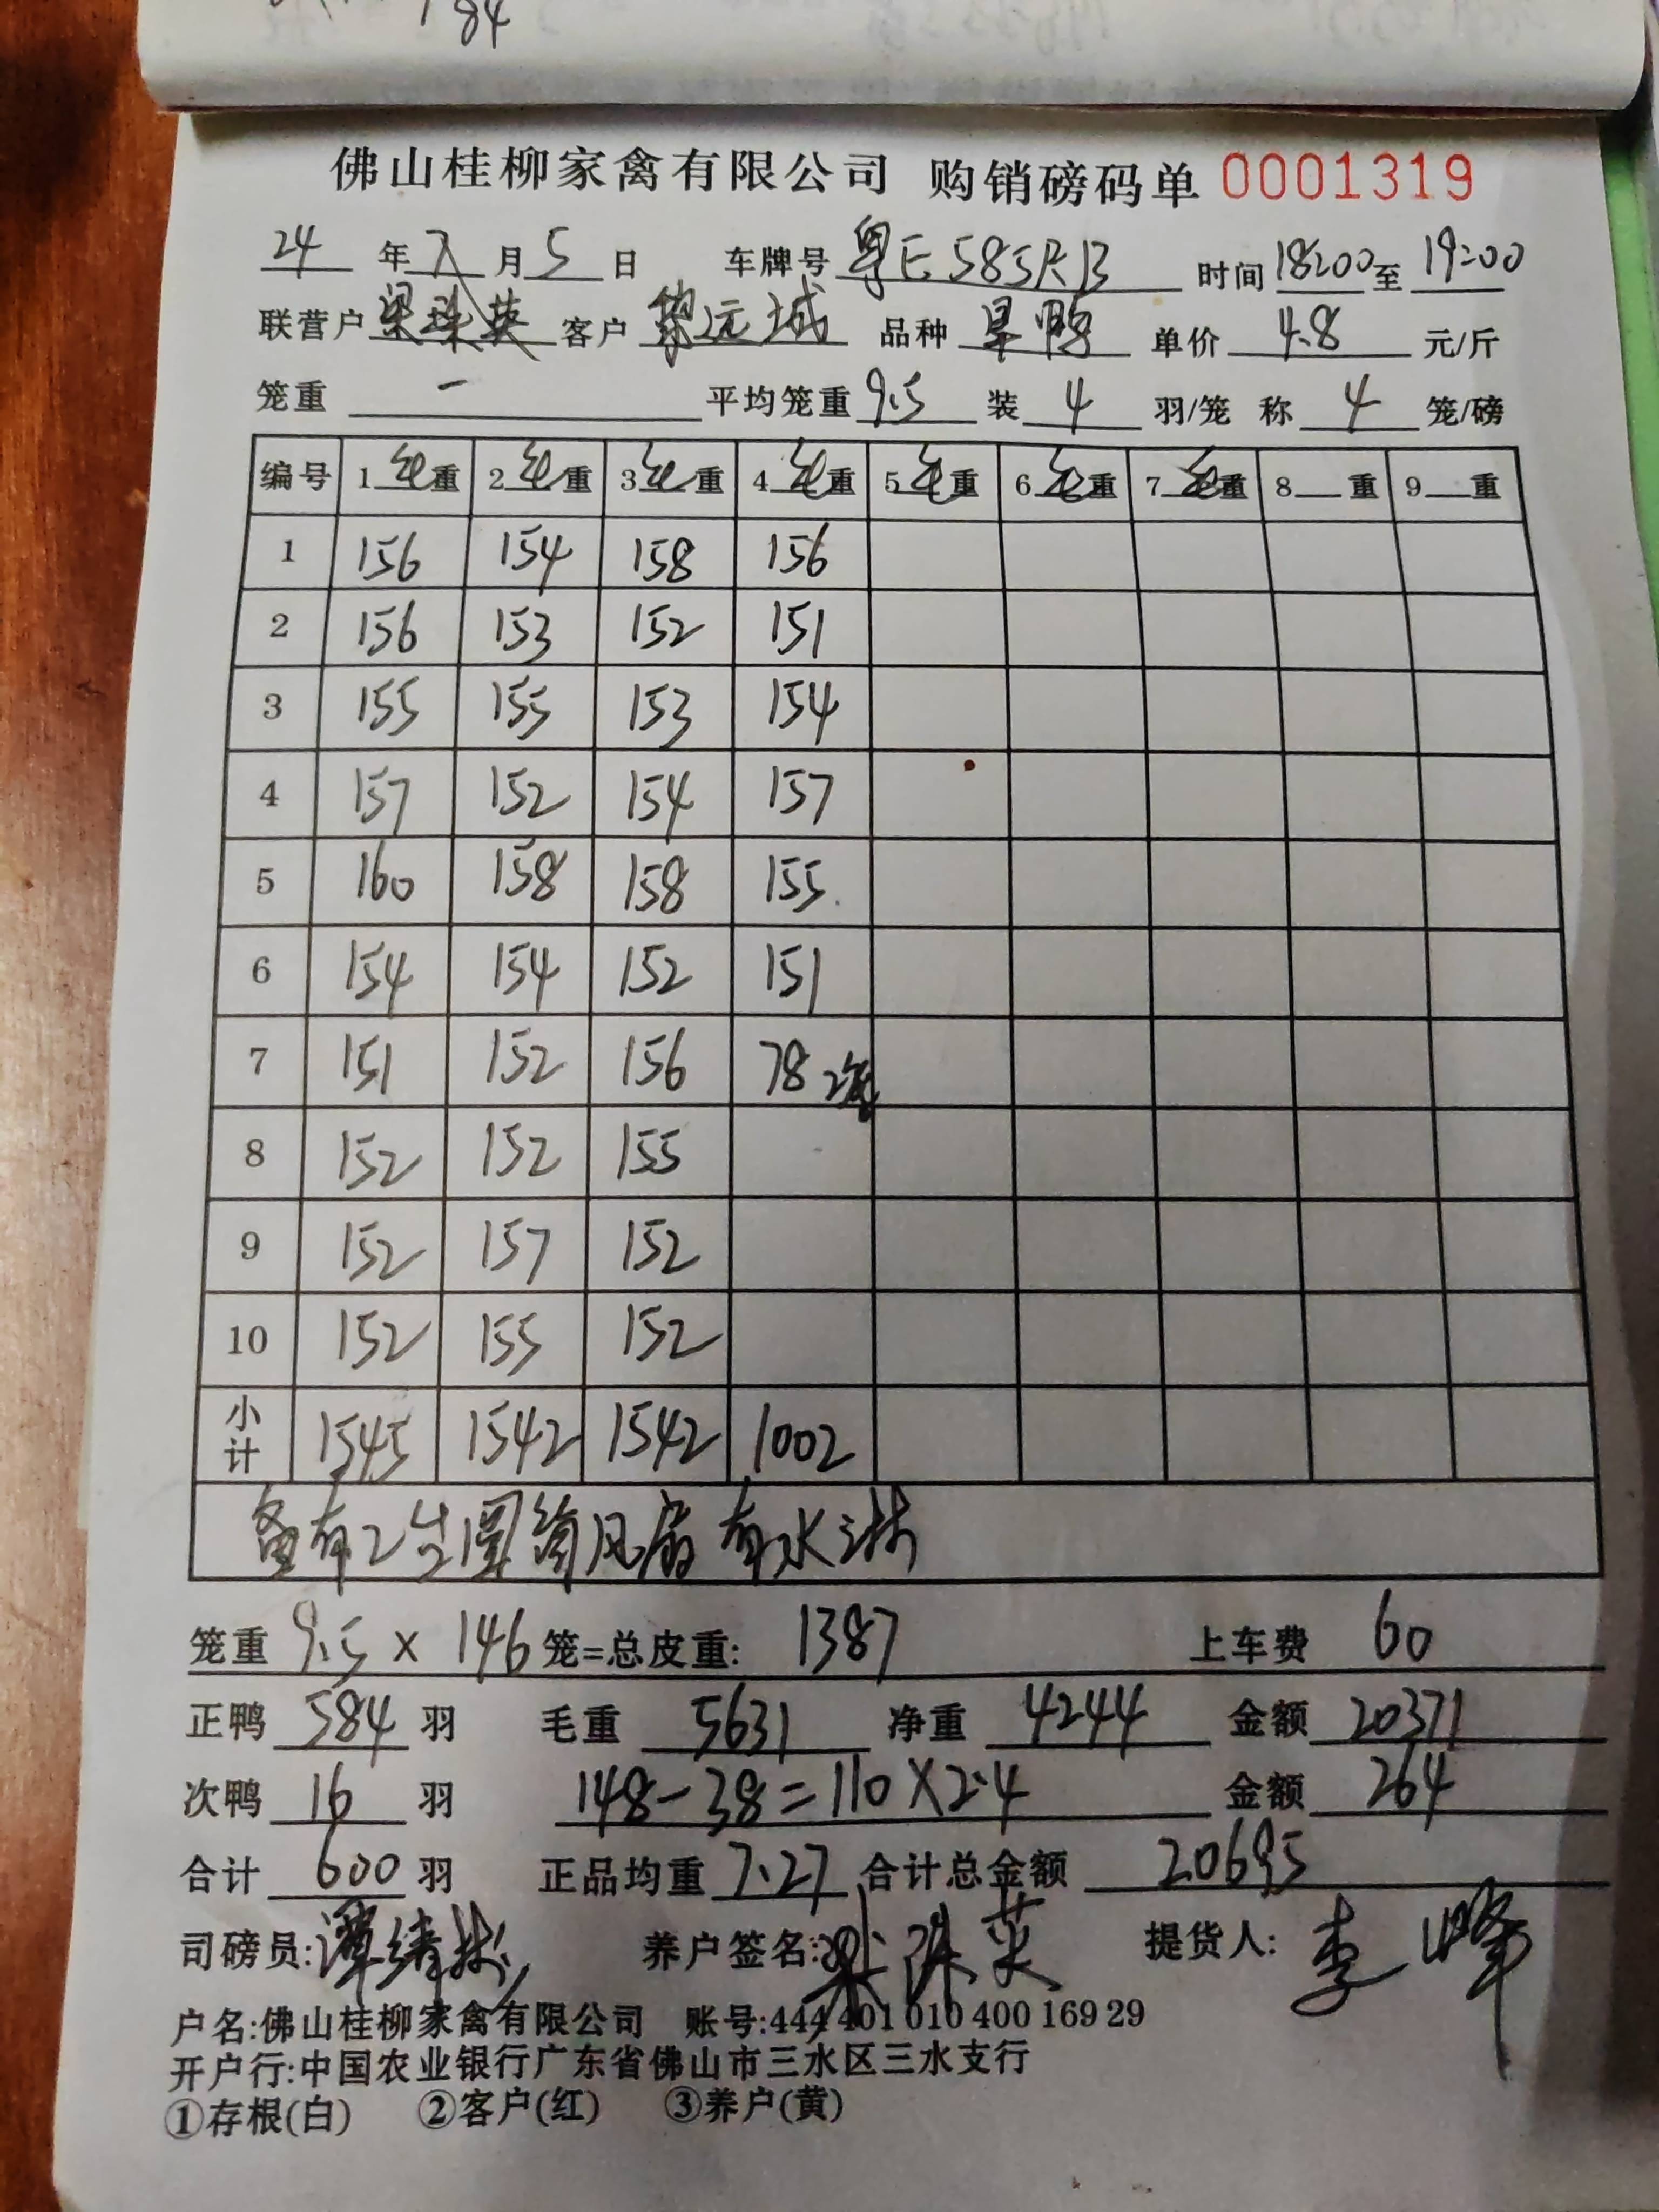 84
佛山桂柳家禽有限公司 购销磅码单 0001319
24 年 7 月 5 日 车牌号 粤E 585 时间 18:00 至 19:00
联营户 梁珠英 客户 黎远城 品种 旱鸭 单价 4.8 元/斤
笼重 一 平均笼重 9.5 装 4 羽/笼 称 4 笼/磅
编号 1 毛重 2 毛重 3 毛重 4 毛重 5 毛重 6 毛重 7 毛重 8 重 9 重
1 156 154 158 156
2 156 153 152 151
3 155 155 153 154
4 157 152 154 157
5 160 158 158 155
6 154 154 152 151
7 151 152 156 78 2笼
8 152 152 155
9 152 157 152
10 152 155 152
小计 1545 1542 1542 1002
备有2台圆筒风扇有水淋
笼重 9.5 × 146 笼=总皮重: 1387 上车费 60
正鸭 584 羽 毛重 5631 净重 4244 金额 20371
次鸭 16 羽 148-38=110×2.4 金额 264
合计 600 羽 正品均重 7.27 合计总金额 20695
司磅员: 谭绮彬 养户签名: 梁珠英 提货人: 李峰
户名:佛山桂柳家禽有限公司 账号:444 401 010 400 169 29
开户行:中国农业银行广东省佛山市三水区三水支行
①存根(白) ②客户(红) ③养户(黄)